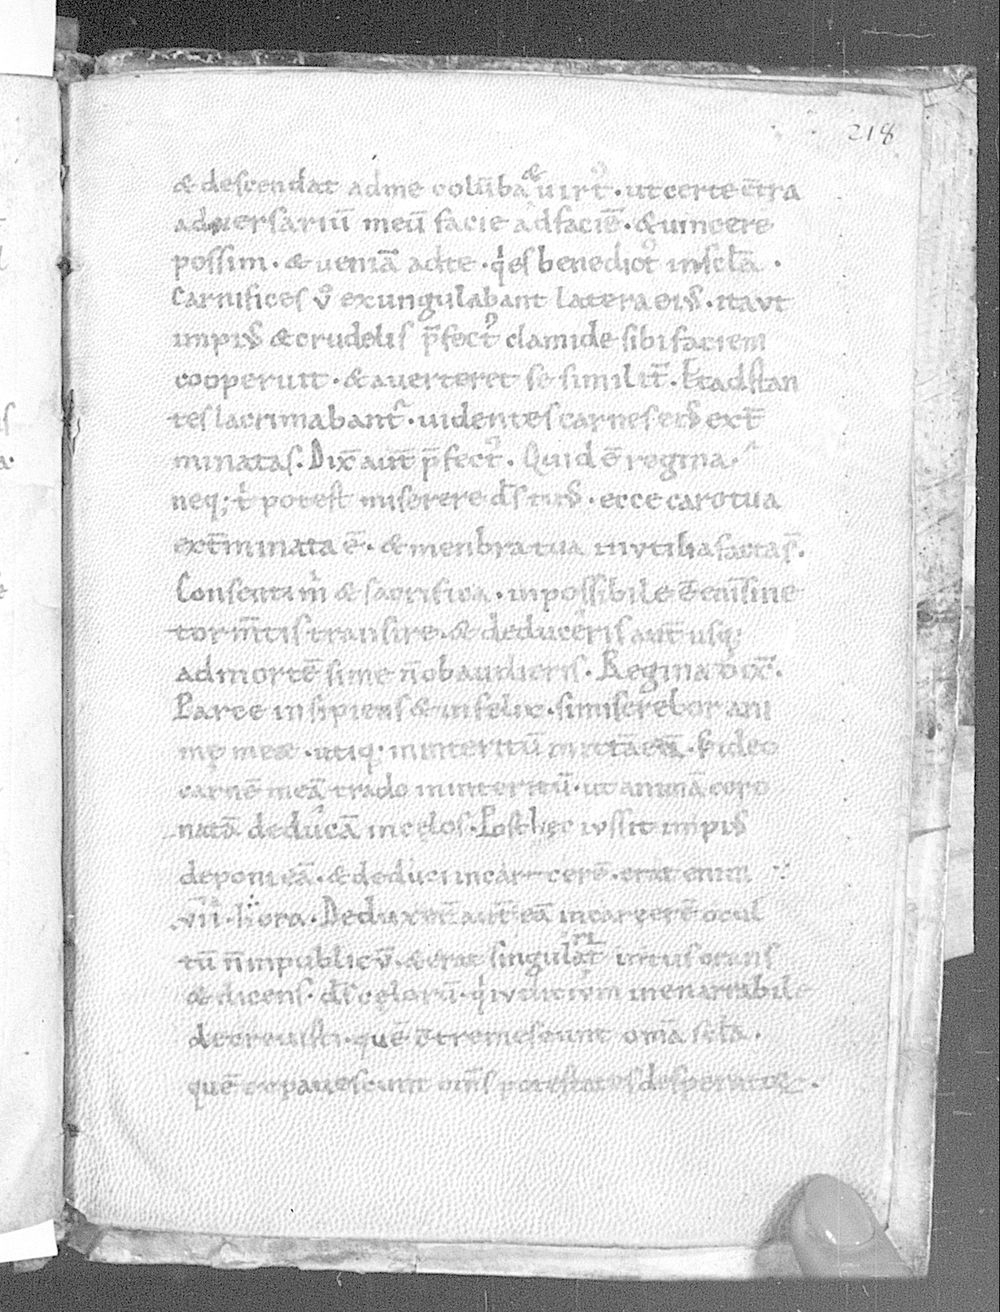 218
& descendat ad me colu̅ba & uirt᷒ · ut certe c̅tra
aduersariu̅ meu̅ facie ad facie̅ · & uincere
possim · & ueniа̅ ad te · qͥ es benedict᷒ in scl̅a ·
Carnifices v̊ exungulabant latera ei᷒ · ita ut
impi᷒ & crudelis p̅fect᷒ clamide sibi faciem
cooperuit · & auerteret se similit̅ · Et adstan
tes lacrimabant᷒ · uidentes carnes ei᷒ ext̅
minatas · Dix̅ aut̅ p̅fect᷒ · Quid e̅ regina
neq; t̓ potest miserere d̅s tu᷒ · ecce caro tua
ext̅minata e̅ · & menbra tua invtilia facta s̅ ·
Consenti m̓ & sacrifica · inpossibile e̅ eni̅ sine
torm̅tis transire · & deduceris aut̅ usq;
ad morte̅ si me n̅ obaudieris · Regina dix̅ ·
Parce insipiens & infelix · si miserebor ani
mę meæ · utiq; in interitu̅ mitta̅ ea̅ · Ideo
carne̅ mea̅ trado in interitu̅ · ut anima̅ coro
nata̅ deduca̅ in cęlos · Post hęc iussit impi᷒
deponi ea̅ · & deduci in carcere̅ · erat enim
.vii · hora · Deduxer̅ aut̅ ea̅ in carcere̅ ocul
tu̅ n̅ in publicu̅ · & erat singulat̅ intus orans
& dicens · d̅s cęloru̅ · qͥ iudicium inenarrabile
decreuisti · que̅ c̅tremescunt om̅a scl̅a ·
que̅ expauescunt om̅s potestates desperatę ·